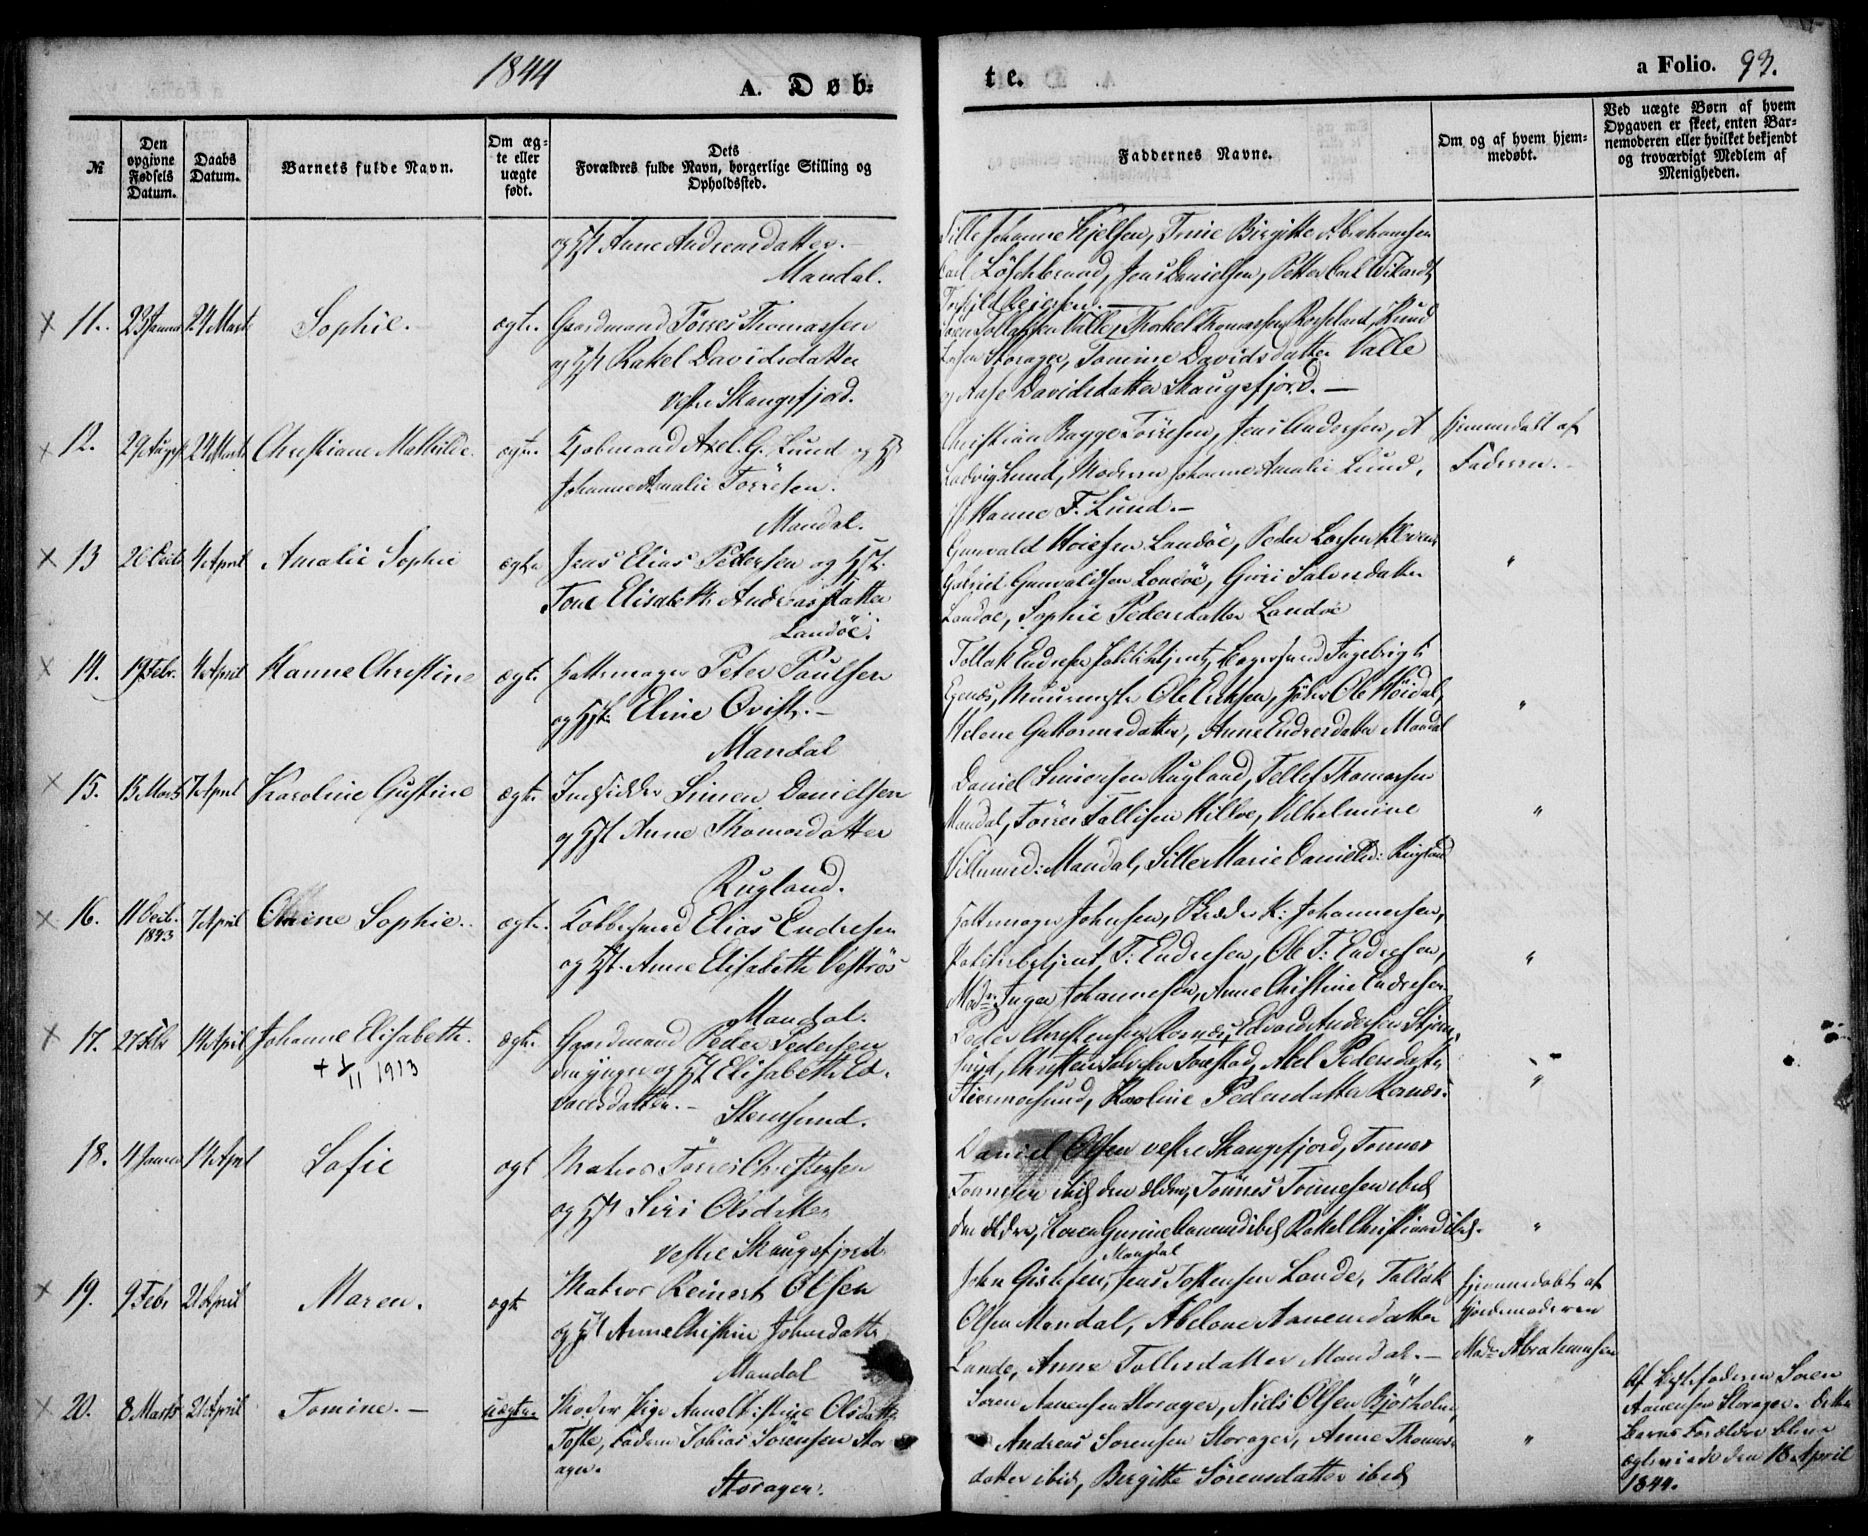 1844
A. Døb-
te.
a Folio. 93.
№
Den opgivne Fødsels Datum.
Daabs Datum.
Barnets fulde Navn.
Om ægte eller uægte født.
Dets Forældres fulde Navn, borgerlige Stilling og Opholdssted.
Faddernes Navne.
Om og af hvem hjemmedøbt.
Ved uægte Børn af hvem Opgaven er skeet, enten Barnemoderen eller hvilket bekjendt og troværdigt Medlem af Menigheden.
og Hst Anne Andreasdatter.
Mandal.
Sille Johanne Kjelsen, Trine Birgitte Abrahamsen
Jens Danielsen, Petter Carl
11. 23 Januar 24 Marts Sophie. ægte. Gaardmand Törres Thomassen
og Hst Rakel Davidsdatter
vestre Skaugsfjord.
Valle, Thorkel Thomassen Roseland, Knud
Storager, Tomine Davidsdatter Valle
og Aase Davidsdatter Skaugsfjord. —
12. 29 August 24 Marts Christiane Mathilde. ægte. Kjøbmand Axel. G. Lund og Hst
Johanne Amalie Törresen.
Mandal.
Christian Bagge Törresen, Jens Andersen, A
Ludvig Lund, Moderen Johanne Amalie Lund,
Hanne F. Lund. —
hjemmedøbt af
Faderen.
13 26 Decb 4 April Amalie Sophie ægte Jens Elias Pedersen og Hst.
Tone Elisabeth Andreasdatter
Landöe.
Gunvald Landöe, Peder Larsen
Gabriel Gunvaldsen Landöe, Guri Salvesdatter
Landöe, Sophie Pedersdatter Landöe
"
14. 19 Febr. 4 April Hanne Christine ægte. Hattemager Peter Paulsen
og Hst. Eline Qvist. —
Mandal
Tollak Endresen Politibetjent, Ingebrigt
Egenæs, Muurmester Ole Eriksen, Ole Höidal,
Helene Guttormsdatter, Anne Endresdatter Mandal
"
15. 15 Marts 7 April Karoline Gustine ægte. Indsidder Simen Danielsen
og Hst Anne Thomasdatter
Rugland.
Daniel Simensen Rugland, Tellef Thomassen
Mandal, Törres Tallisen Hille, Vilhelmine
Villumsd: Mandal, Sille Marie Danielsd: Rugland
"
16. 11 Decb. 1843 7 April Sophie. ægte. Kobbersmed Elias Endresen
og Hst. Anne Elisabeth
Mandal.
Hattemager Johnsen, Skræder K: Johannesen,
Politibetjent T: Endresen, Ole T: Endresen,
Mad: Inger Johannesen, Anne Christine Endresen
"
17. 27 Feb 14 April Johanne Elisabeth. ægte. Gaardmand Peder Pedersen
+ 4/11 1913
den yngre og Hst Elisabeth Ed-
vardsdatter. — Stemsund.
Peder Christensen Rornæs, Edvard Andersen
sund, Christen Salvesen Abel Pedersdatter
Karoline Pedersdatter Rornæs.
"
18. 4 Januar 14 April Sofie ægt Matros Törres Christensen
og Hst Siri Olsdatter
vestre Skaugsfjord
Daniel Olsen vestre Skaugsfjord, Tonnes
Tonnesen ibid den ældre, Tönnes Tonnesen ibid
den ældre, Karen Gurine ibid Rakel ibid.
"
19. 9 Febr 21 April Maren. ægte. Matros Reinert Olsen
og Hst Anne Christine Johnsdatter
Mandal
John Mandal, Jens Torkensen Lande, Tallak
Olsen Mandal, Abelone Aanensdatter
Lande, Anne Tollisdatter Mandal. —
hjemmedøbt af
Gjordemoderen
Mad: Abrahamsen
20. 8 Marts 21 April Tomine. — uægte. Moder Pige Anne Christine Olsdatter
Foste, Fader Tobias Sörensen Stor
ager.
Storager.
Soren Aanensen Storager, Niels Olsen Bjørholm,
Andreas Sorensen Storager, Anne Thomas-
datter ibid, Birgitte Sörensdatter ibid
"
Af Bestefaderen Soren
Aanensen Storager. Dette
Barns Forældre bleve
ægteviede den 18 April
1844.